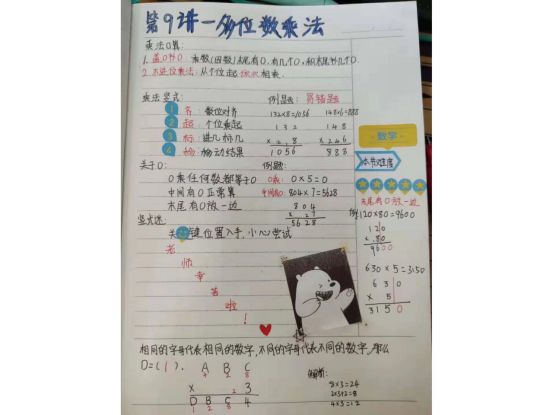 第9讲一多位数乘法
乘法口算:
1. 盖0补0: 乘数(因数)末尾有0,有几个0,积末尾补几个0.
2. 不进位乘法: 从个位起依次相乘.
乘法竖式:
例题: 易错题
132×8=1056 148×6=888
1 数位对齐
2 起: 个位乘起
3 标: 进几标几
4 物动结果
1 3 2
× 8
1 0 5 6
1 4 8
× 6
8 8 8
关于0:
例题:
0乘任何数都等于0
0乘: 0×5=0
中间有0正常算
中间有0: 804×7=5628
末尾有0放一边
8 0 4
× 7
5 6 2 8
竖式迷:
关键位置入手,小心尝试
老
师
幸
苦
啦
!
数学
本节难度
末尾有0放一边
例:120×80=9600
1 2 0
× 80
9 6 0 0
630×5=3150
6 3 0
× 5
3 1 5 0
相同的字母代表相同的数字,不同的字母代表不同的数字,那么
D=(1).
A B C
4 2 8
× 3
D B C 4
1 2 8
8×3=24
2×3+2=8
4×3=12